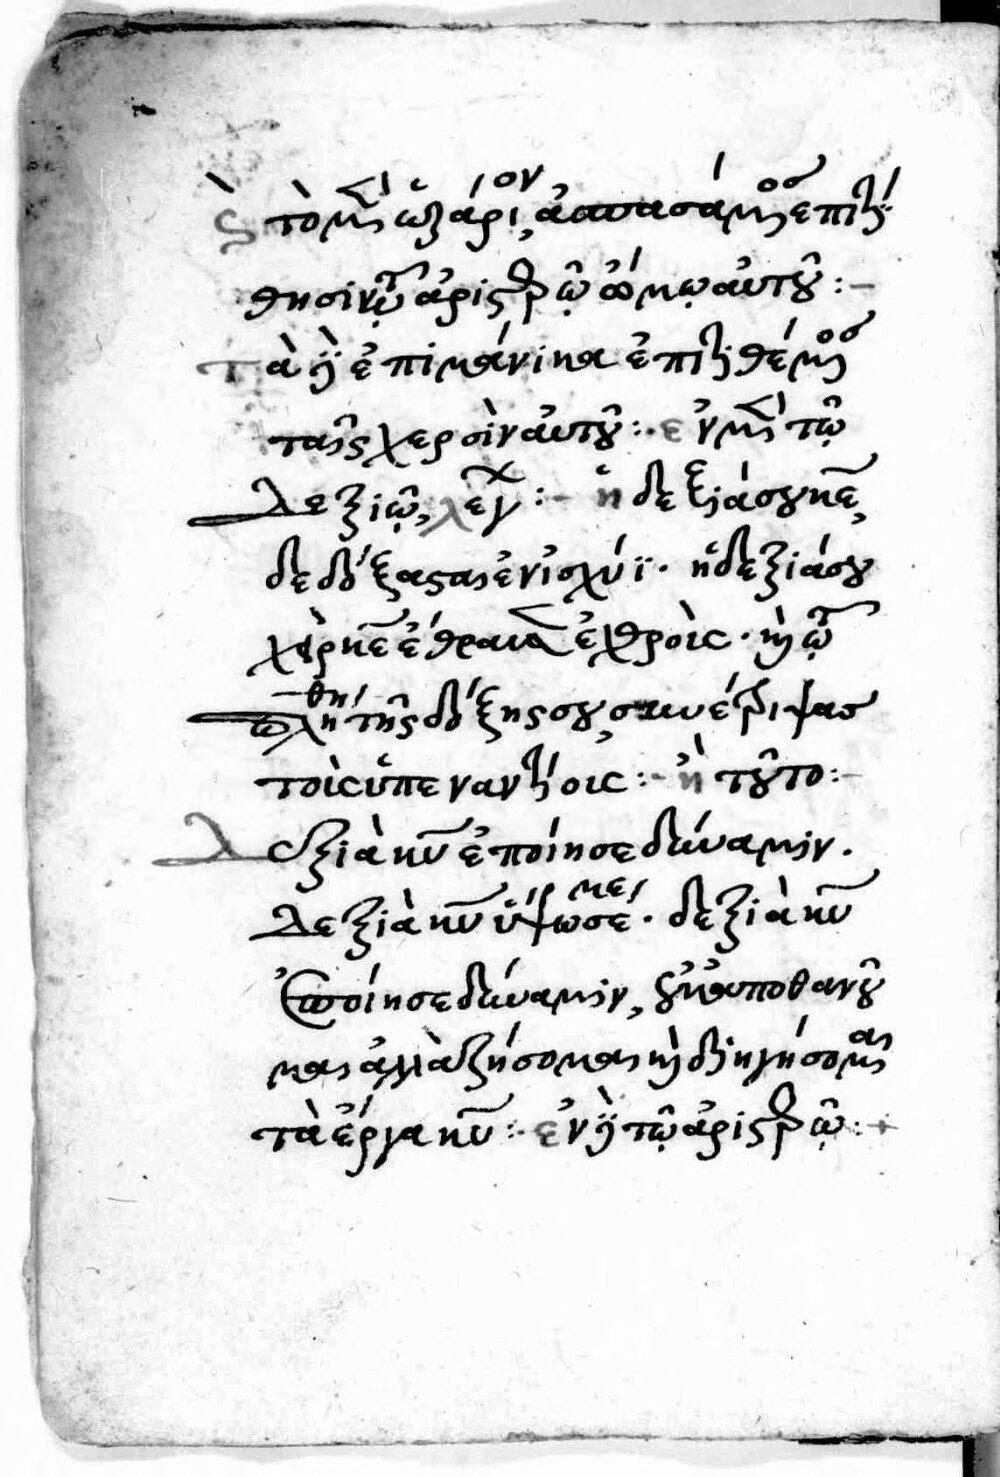 ς τὸ μὲν ὡράριον, ἀσπασάμενος ἐπιτί
θησιν τῷ ἀριστερῷ ὤμῳ αὐτοῦ :–
τὰ δὲ ἐπιμάνικα ἐπιτιθέμενος
ταῖς χερσὶν αὐτοῦ :· ἐν μὲν τῷ
δεξιῷ, λέγει :– ἡ δεξιά σου κύριε,
δεδόξασται ἐν ἰσχύϊ · ἡ δεξιά σου
χὶρ κύριε ἔθραυσεν ἐχθροὺς · καὶ τῷ
πλήθη τῆς δόξης σου, συνέτριψας
τοὺς ὑπεναντίους :– ἢ τοῦτο :–
Δεξιὰ κυρίου ἐποίησε δύναμιν ·
Δεξιὰ κυρίου ὕψωσέ με · δεξιὰ κυρίου
ἐποίησε δύναμιν, οὐκ ἀποθανοῦ
μαι ἀλλὰ ζήσομαι καὶ διηγήσομαι
τὰ ἔργα κυρίου :· ἐν δὲ τῷ ἀριστερῷ :·